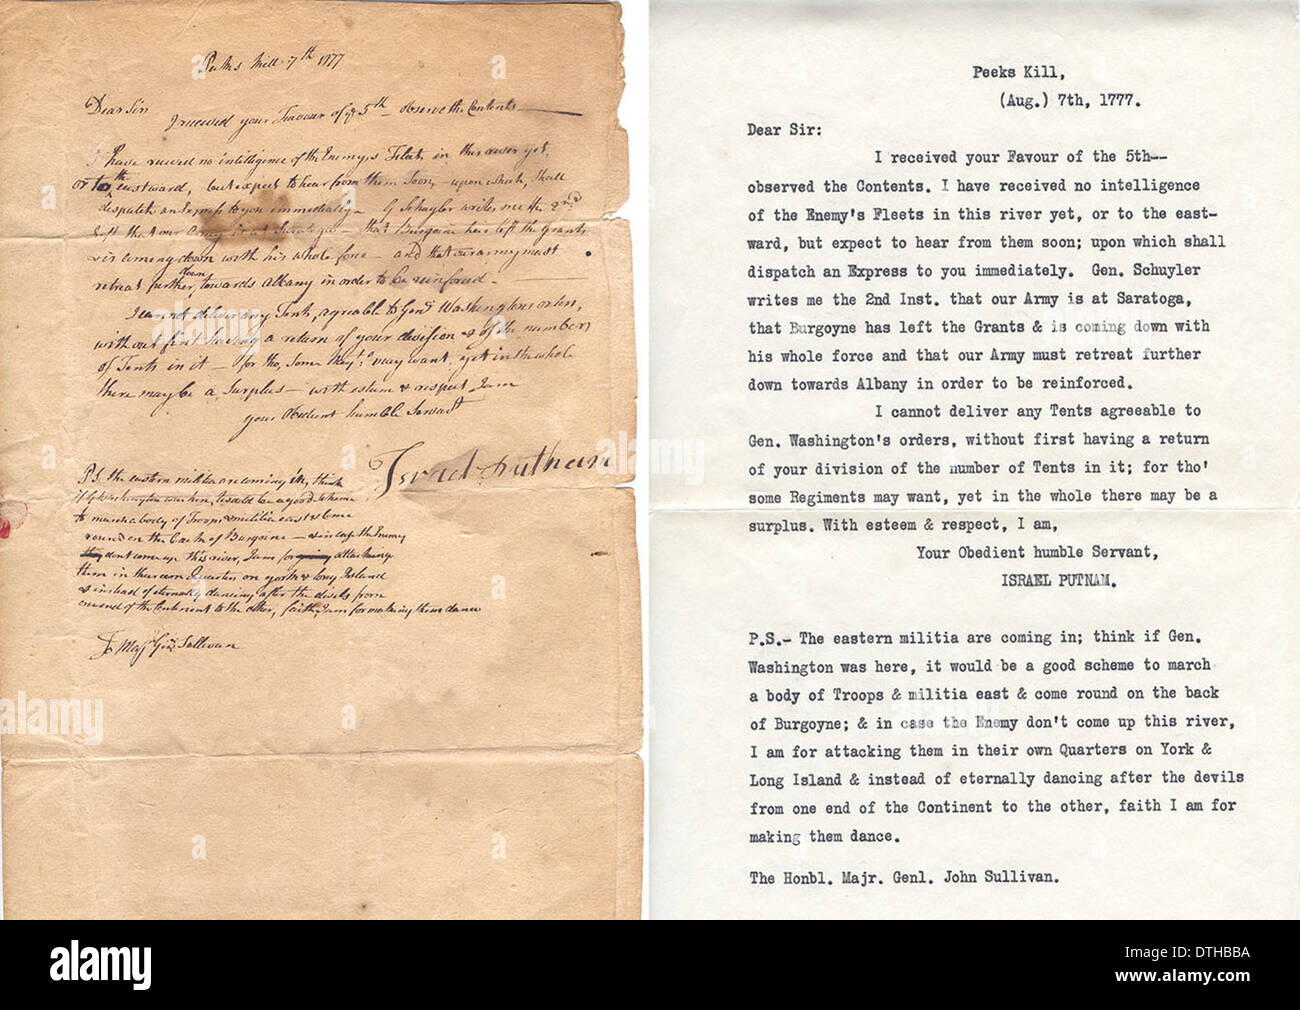 Peeks Kill 7th 1777
Dear Sir
I received your Favour of ye 5th observe the Contents
I have receved no intelligence of the Enemys Fleet, in this river yet,
or to th eastward, but expect to hear from them Soon, upon which, Shall
despatch an Express to you immediately - G Schuyler writes me the 2nd
that our Army is at Saratoga - that Burgoine has left the Grants
& is coming down with his whole force - and that our army must
retreat further down towards Albany in order to be reinforced -
I cannot deliver any Tents, agreable to Genl Washingtons orders,
without first having a return of your division & of the number
of Tents in it - for tho, Some may want yet in the whole
there may be a Surplus - with esteem & respect I am
your Obedient humble Servant
Israel Putnam
P.S. the eastern militia are coming in, think
if G Washington was here, it would be a good scheme
to march a body of Troops & militia east & come
round on the back of Burgoine - & in case the Enemy
dont come up this river, I am for attacking
them in their own Quarters on york & long Island
& instead of eternally dancing after the divels from
one end of the Continent to the other, faith, I am for making them dance
To Majr Genl Sullivan
Peeks Kill,
(Aug.) 7th, 1777.
Dear Sir:
I received your Favour of the 5th--
observed the Contents. I have received no intelligence
of the Enemy's Fleets in this river yet, or to the east-
ward, but expect to hear from them soon; upon which shall
dispatch an Express to you immediately. Gen. Schuyler
writes me the 2nd Inst. that our Army is at Saratoga,
that Burgoyne has left the Grants & is coming down with
his whole force and that our Army must retreat further
down towards Albany in order to be reinforced.
I cannot deliver any Tents agreeable to
Gen. Washington's orders, without first having a return
of your division of the number of Tents in it; for tho'
some Regiments may want, yet in the whole there may be a
surplus. With esteem & respect, I am,
Your Obedient humble Servant,
ISRAEL PUTNAM.
P.S.- The eastern militia are coming in; think if Gen.
Washington was here, it would be a good scheme to march
a body of Troops & militia east & come round on the back
of Burgoyne; & in case the Enemy don't come up this river,
I am for attacking them in their own Quarters on York &
Long Island & instead of eternally dancing after the devils
from one end of the Continent to the other, faith I am for
making them dance.
The Honbl. Majr. Genl. John Sullivan.
alamy
Image ID: DTHBBA
www.alamy.com